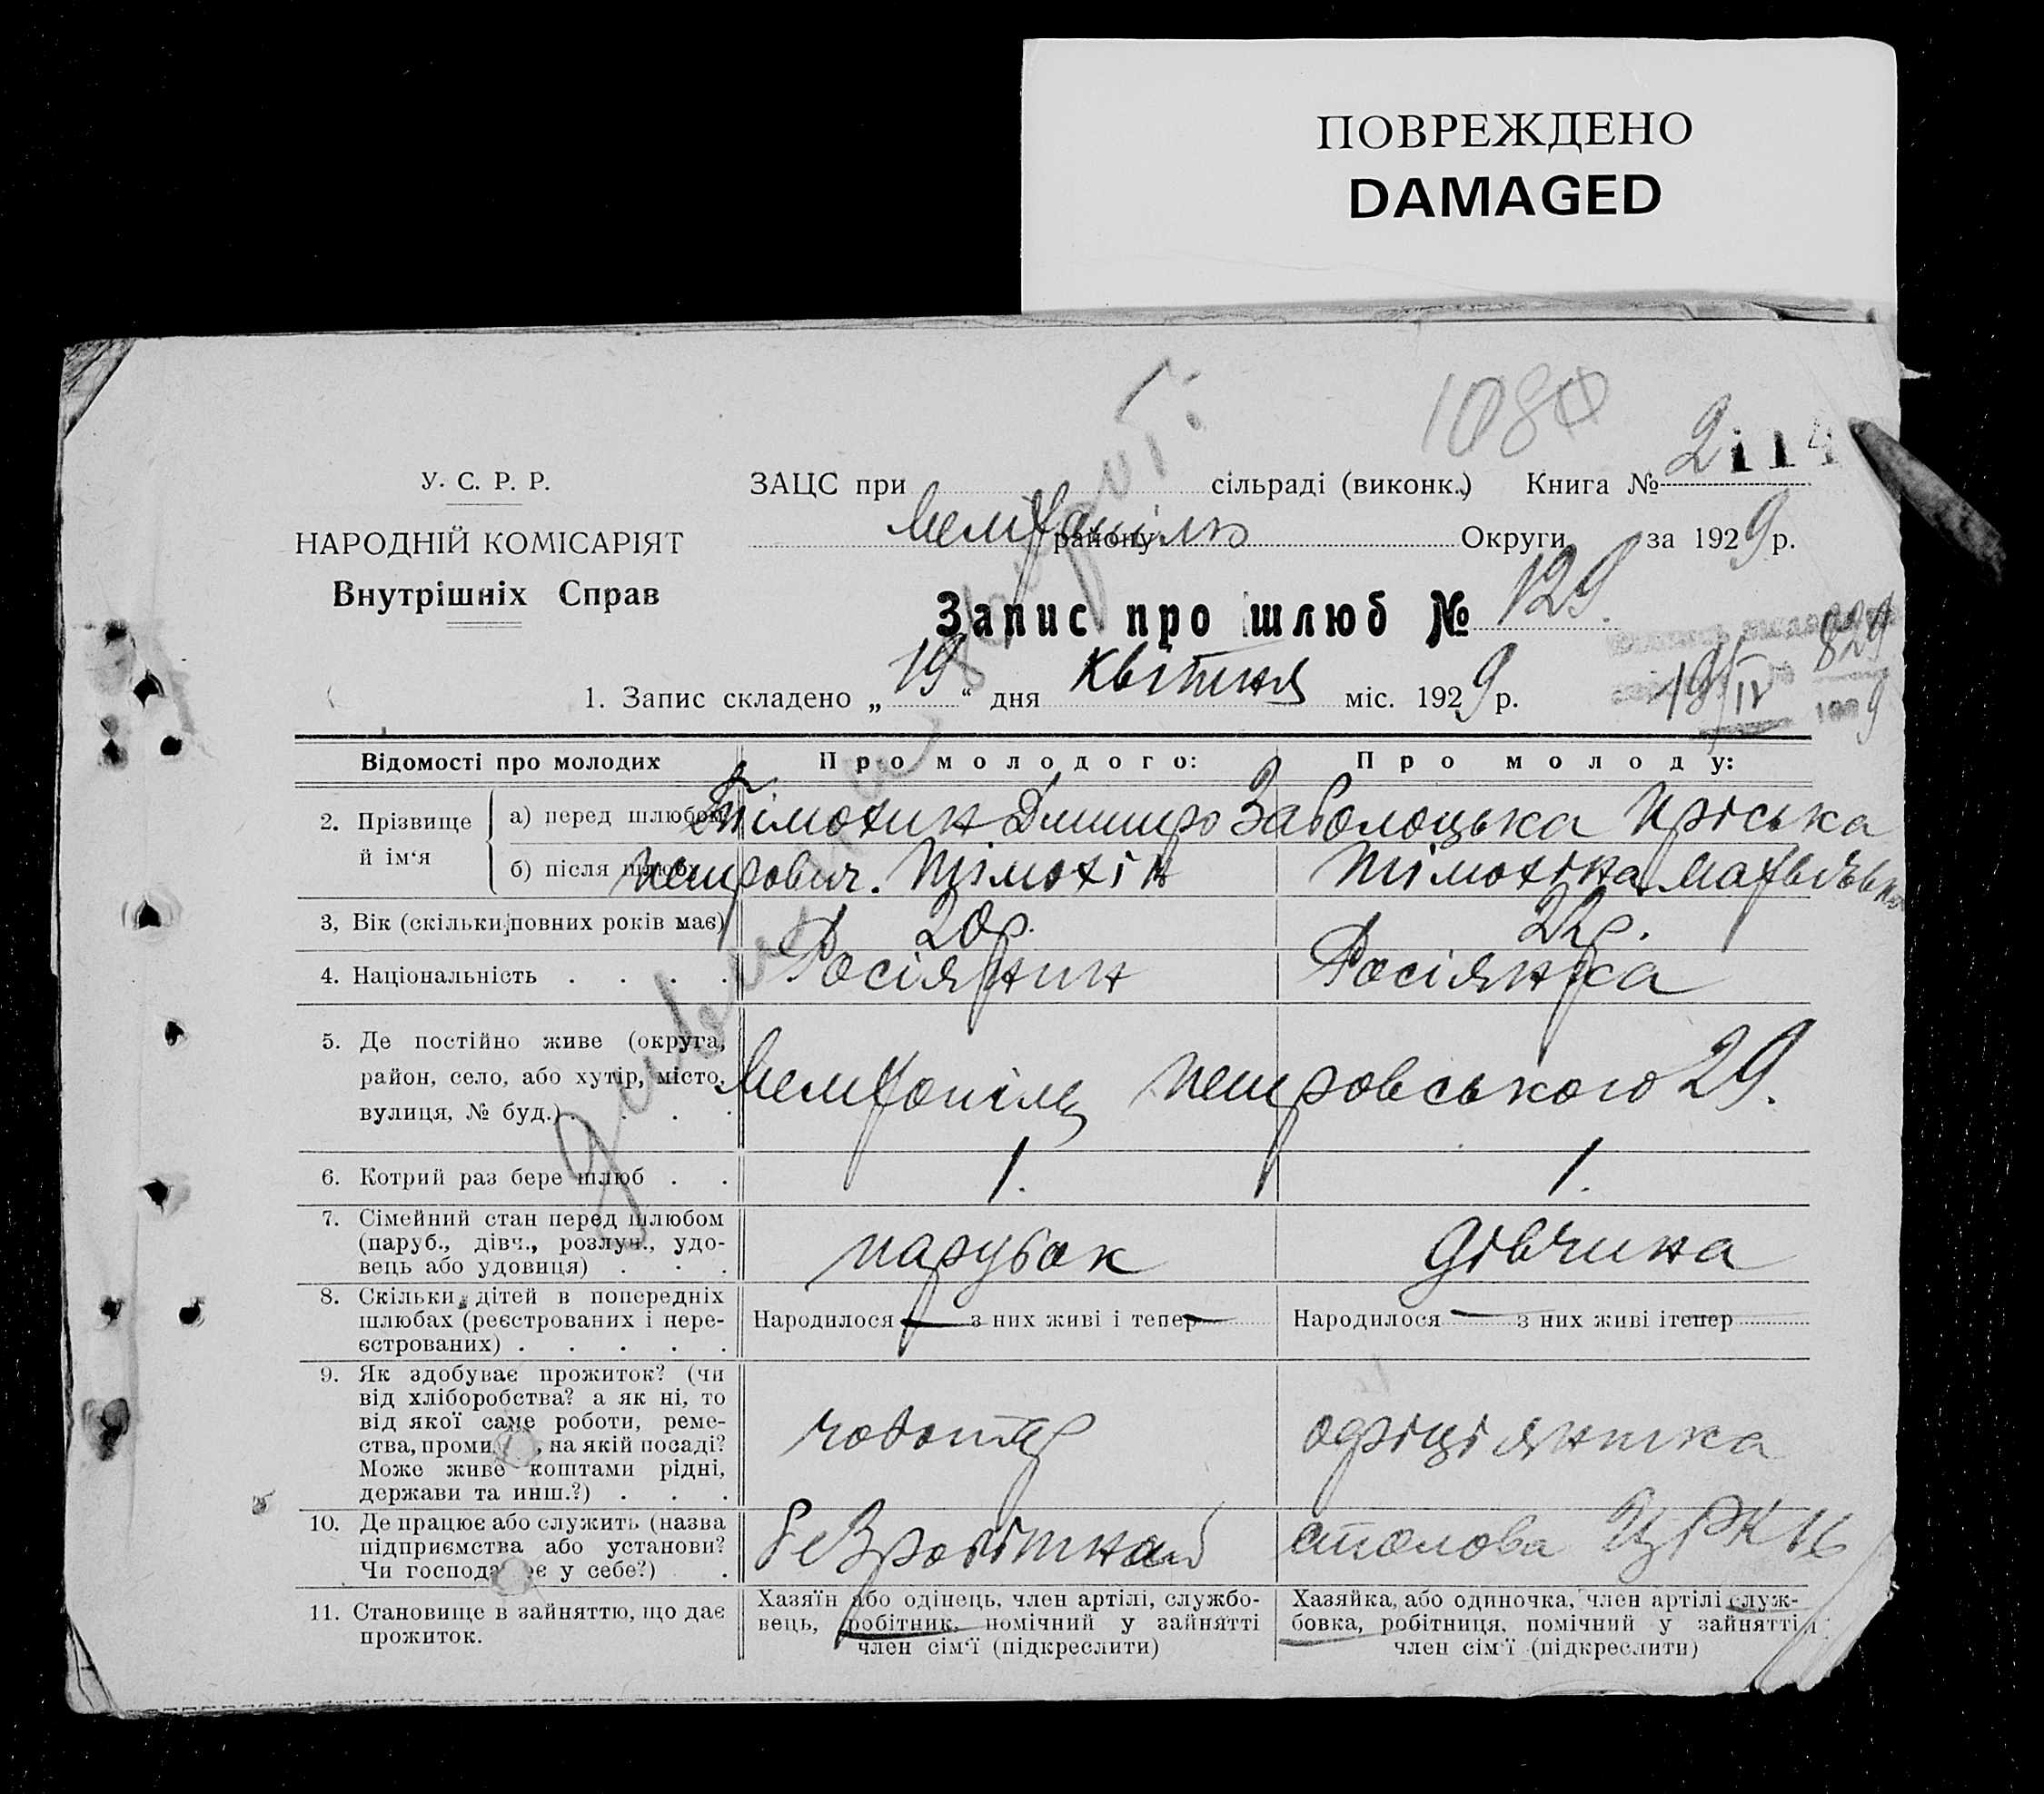 ПОВРЕЖДЕНО
DAMAGED
1080
У. С. Р. Р.
НАРОДНІЙ КОМІСАРІЯТ
Внутрішніх Справ
ЗАЦС при сільраді (виконк.) Книга № 2 114
району Округи за 1929 р.
Запис про шлюб № 129.
1. Запис складено „19“ дня квітня міс. 1929 р.
829
19/IV 1929
Відомості про молодих Про молодого: Про молоду:
2. Прізвище й ім‘я
а) перед шлюбом Тімохин Дмитро Заболоцька Пріська
б) після шлюбу Петрович. Тімохін Тімохіна
3, Вік (скільки повних років має) 20 р. 22 р.
4. Національність . . . . Росіянин Росіянка
5. Де постійно живе (округа,
район, село, або хутір, місто,
вулиця, № буд.) . . . Петровського 29.
6. Котрий раз бере шлюб . . 1. 1.
7. Сімейний стан перед шлюбом
(паруб., дівч., розлуч., удо-
вець або удовиця) . . . парубок дівчина
8. Скільки дітей в попередніх
шлюбах (реєстрованих і нере-
єстрованих) . . . . .
Народилося — з них живі і тепер — Народилося — з них живі ітепер
9. Як здобуває прожиток? (чи
від хліборобства? а як ні, то
від якої саме роботи, реме-
ства, проми , на якій посаді?
Може живе коштами рідні,
держави та инш.?) . . . чоботар офіціянтка
10. Де працює або служить (назва
підприємства або установи?
Чи господа є у себе?) . безробітний столова ЦРК
11. Становище в зайняттю, що дає
прожиток.
Хазяїн або одінець, член артілі, службо-
вець, робітник, помічний у зайнятті
член сім‘ї (підкреслити)
Хазяйка, або одиночка, член артілі служ-
бовка, робітниця, помічний у зайнятті
член сім‘ї (підкреслити)